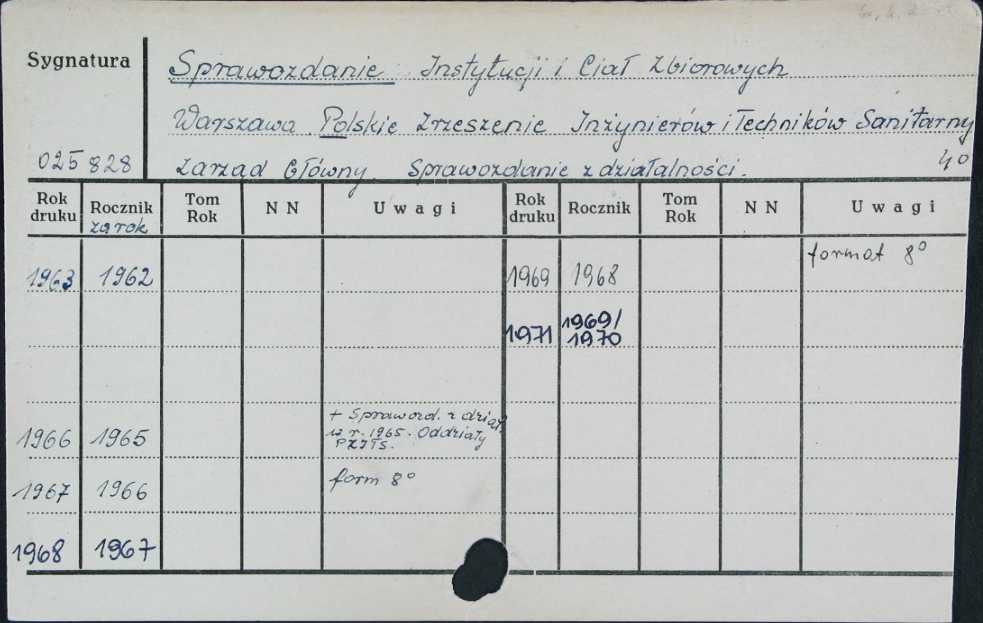 Sygnatura
Sprawozdanie Instytucji i Ciał Zbiorowych
Warszawa Polskie Zrzeszenie Inżynierów i Techników Sanitarny
025828 Zarząd Główny. Sprawozdanie z działalności. 40
Rok druku Rocznik za rok Tom Rok N N Uwagi Rok druku Rocznik Tom Rok N N Uwagi
1963 1962 1969 1968 format 8°
1971 1969/
1970
1966 1965 + Sprawozd. z dział.
w r. 1965. Oddziały
PZITS.
1967 1966 form 8°
1968 1967